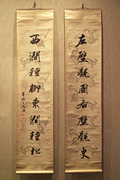 左壁觀圖右壁觀史
西湖種柳東湖種松